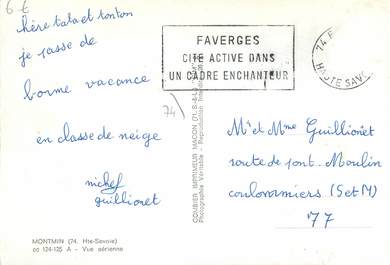 6 €
hère tata et tonton
je passe de
borme vacance
en classe de neige
michel
guillionet
MONTMIN (74. Hte-Savoie)
cc 124-125 A - Vue aérienne
FAVERGES
CITE ACTIVE DANS
UN CADRE ENCHANTEUR
74 F
HAUTE SAVOIE
74
COMBIER IMPRIMEUR MACON (71, S.-&-L.)
Photographie Véritable - Reproduction Interdite
Mr et Mme Guillionet
route de pont-Moulin
coulommiers (S et M)
77